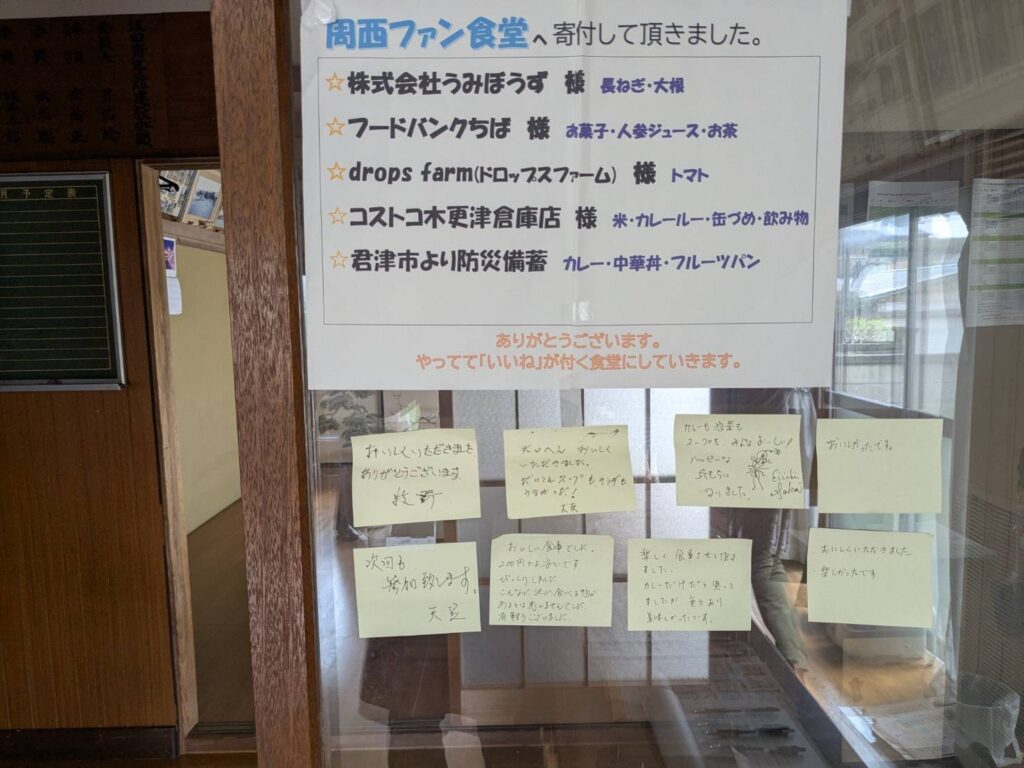 周西ファン食堂へ寄付して頂きました。
☆株式会社うみぼうず 様 長ねぎ・大根
☆フードバンクちば 様 お菓子・人参ジュース・お茶
☆drops farm(ドロップスファーム) 様 トマト
☆コストコ木更津倉庫店 様 米・カレールー・缶づめ・飲み物
☆君津市より防災備蓄 カレー・中華丼・フルーツパン
ありがとうございます。
やってて「いいね」が付く食堂にしていきます。
月予定表
おいしくいただきました
ありがとうございます
牧野
たいへん おいしく
いただきました。
だいこんスープも
カレーも惣菜も
スープも、みんなおーいしい!
ハッピーな
気もちに
なりました。
おいしかったです。
次回も
参加致します。
おいしい食事でした。
200円では安いです
びっくりしました
こんなに沢山食べる物が
あるとは思いませんでした
有難うございました。
楽しく食事させて頂き
ました。
カレーだけだと思って
ましたが 色々あり
美味しかったです。
おいしくいただきました
楽しかったです。